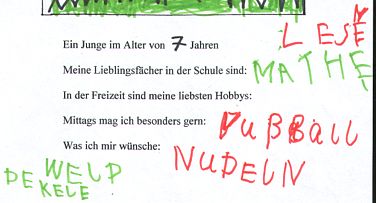 LESEN
Ein Junge im Alter von 7 Jahren
Meine Lieblingsfächer in der Schule sind: MATHE
In der Freizeit sind meine liebsten Hobbys:
Mittags mag ich besonders gern: FUßBALL
Was ich mir wünsche: NUDELN
WELP
DEKELE